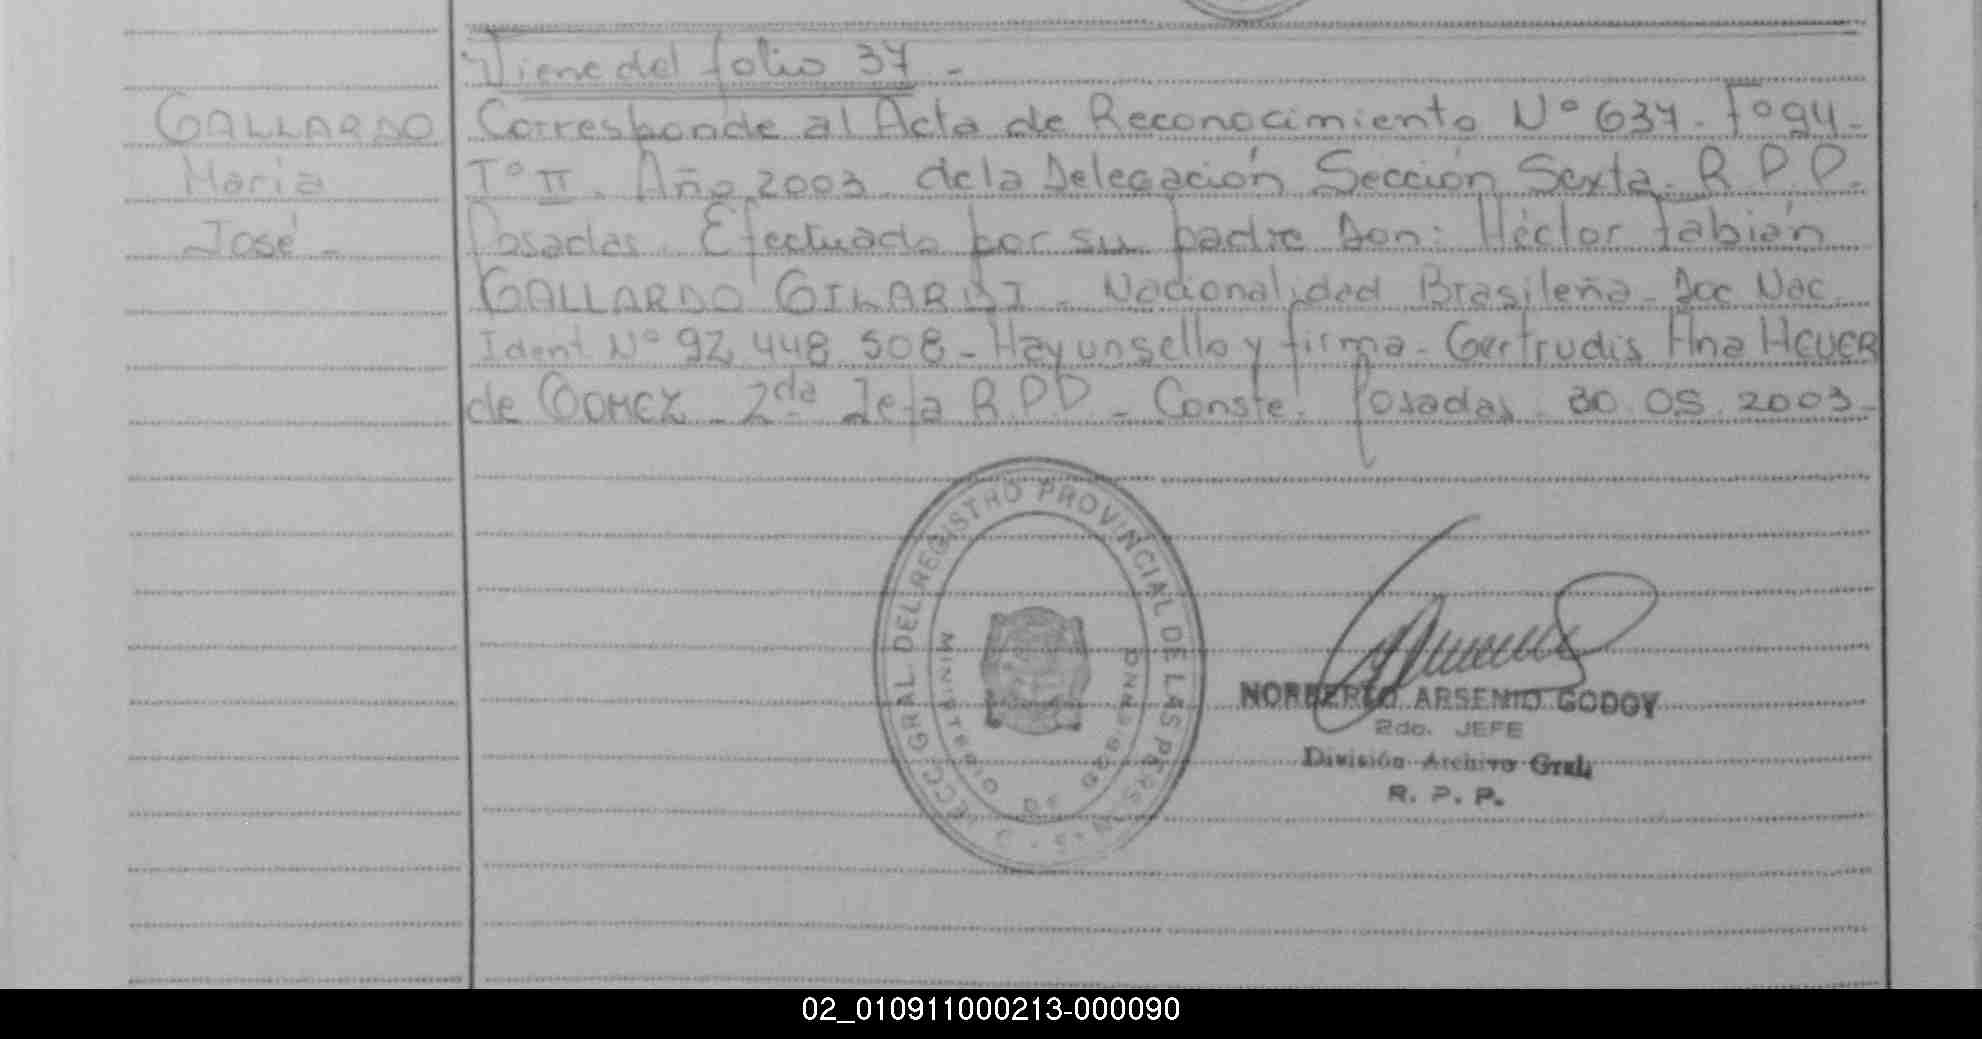 Viene del folio 37 -
GALLARDO
Maria
José -
Corresponde al Acta de Reconocimiento Nº 637 - Fº 94 -
Tº II. Año 2003. de la Delegación Sección Sexta - R.P.P.
Posadas. Efectuada por su padre Don: Héctor Fabián
GALLARDO GILARDI - Nacionalidad Brasileña - Doc Nac.
Ident Nº 92 448 508 - Hay un sello y firma - Gertrudis Ana HEUER
de GOMEZ - 2da Jefa R.P.P - Conste. Posadas. 30.05.2003 -
DIRECC. GRAL. DEL REGISTRO PROVINCIAL DE LAS PERSONAS
MINISTERIO DE GOBIERNO
NORBERTO ARSENIO GODOY
2do. JEFE
División Archivo Gral.
R. P. P.
02_010911000213-000090